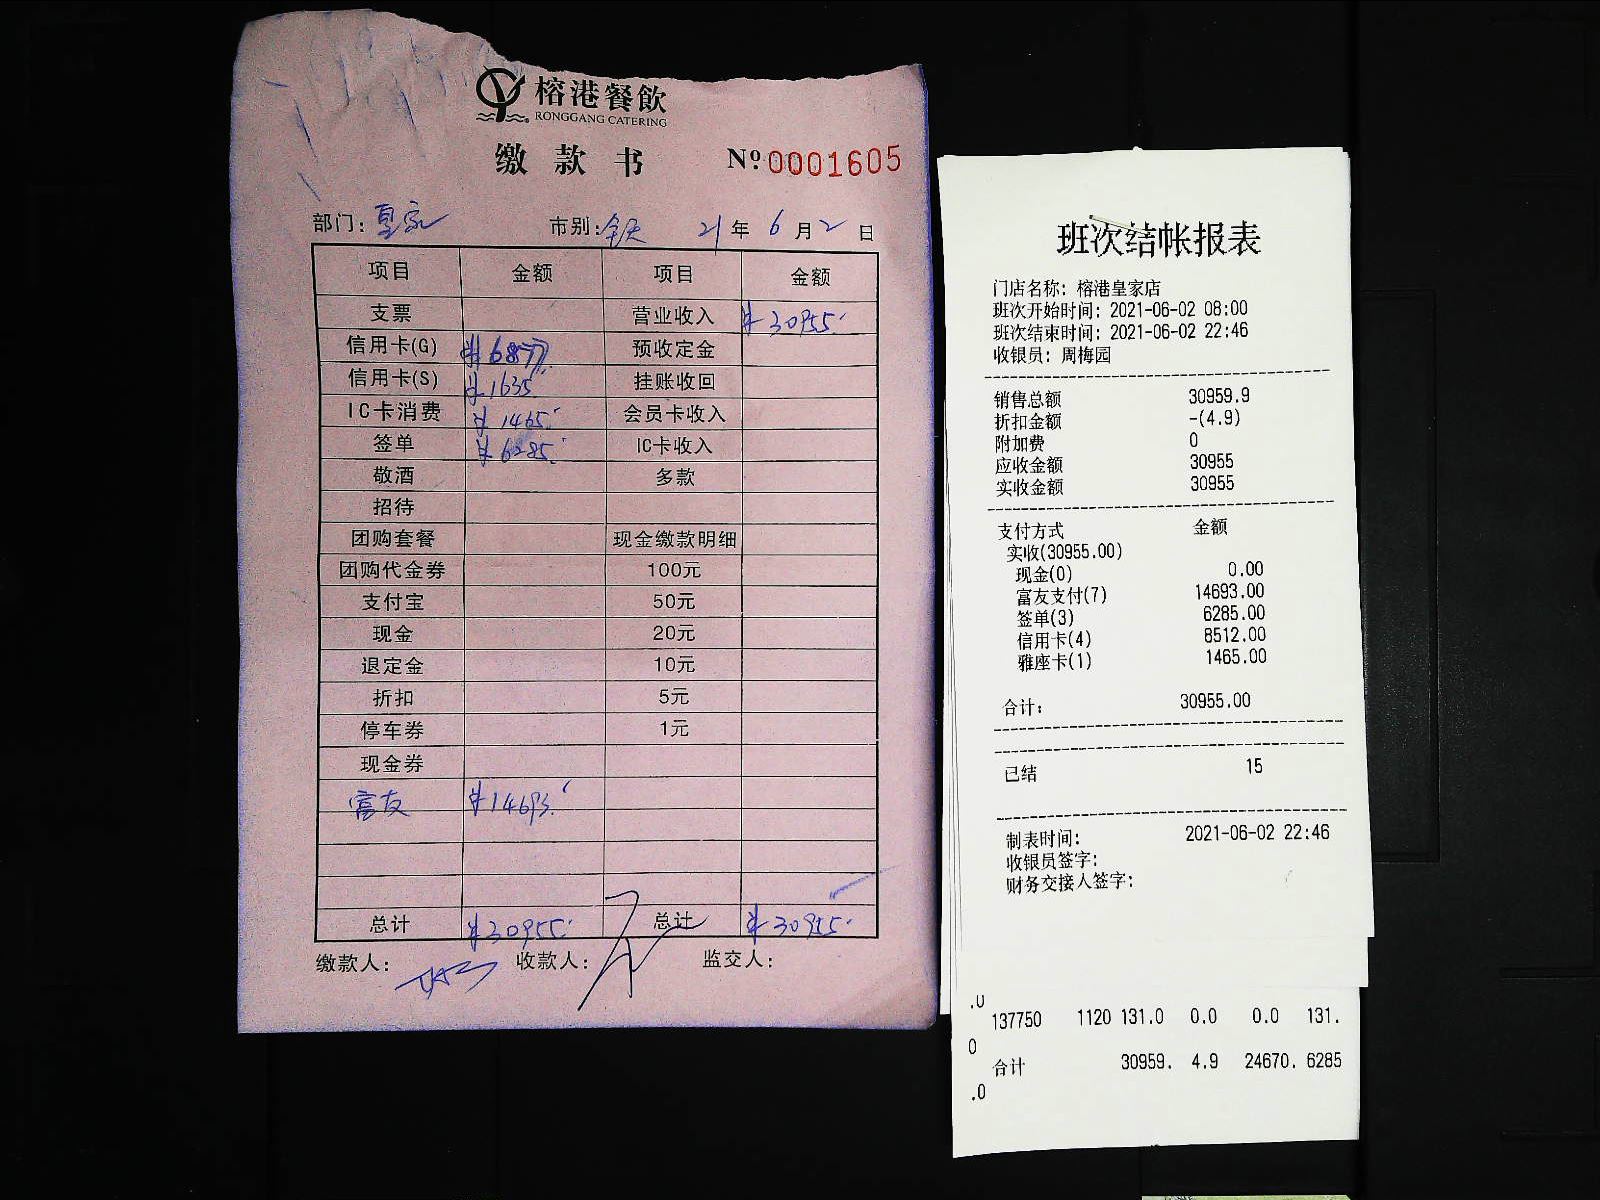 榕港餐飲
RONGGANG CATERING
缴款书 №0001605
部门: 皇家 市别: 全天 21年6月2日
项目 金额 项目 金额
支票 营业收入 ¥30955.
信用卡(G) ¥6877 预收定金
信用卡(S) ¥1635 挂账收回
IC卡消费 ¥1465. 会员卡收入
签单 ¥6285. IC卡收入
敬酒 多款
招待
团购套餐 现金缴款明细
团购代金券 100元
支付宝 50元
现金 20元
退定金 10元
折扣 5元
停车券 1元
现金券
富友 ¥14693.
总计 ¥30955. 总计 ¥30955.
缴款人: 收款人: 监交人:
班次结帐报表
门店名称: 榕港皇家店
班次开始时间: 2021-06-02 08:00
班次结束时间: 2021-06-02 22:46
收银员: 周梅园
销售总额 30959.9
折扣金额 -(4.9)
附加费 0
应收金额 30955
实收金额 30955
支付方式 金额
实收(30955.00)
现金(0) 0.00
富友支付(7) 14693.00
签单(3) 6285.00
信用卡(4) 8512.00
雅座卡(1) 1465.00
合计: 30955.00
已结 15
制表时间: 2021-06-02 22:46
收银员签字:
财务交接人签字:
.0
137750 1120 131.0 0.0 0.0 131.
0
合计 30959. 4.9 24670. 6285
.0